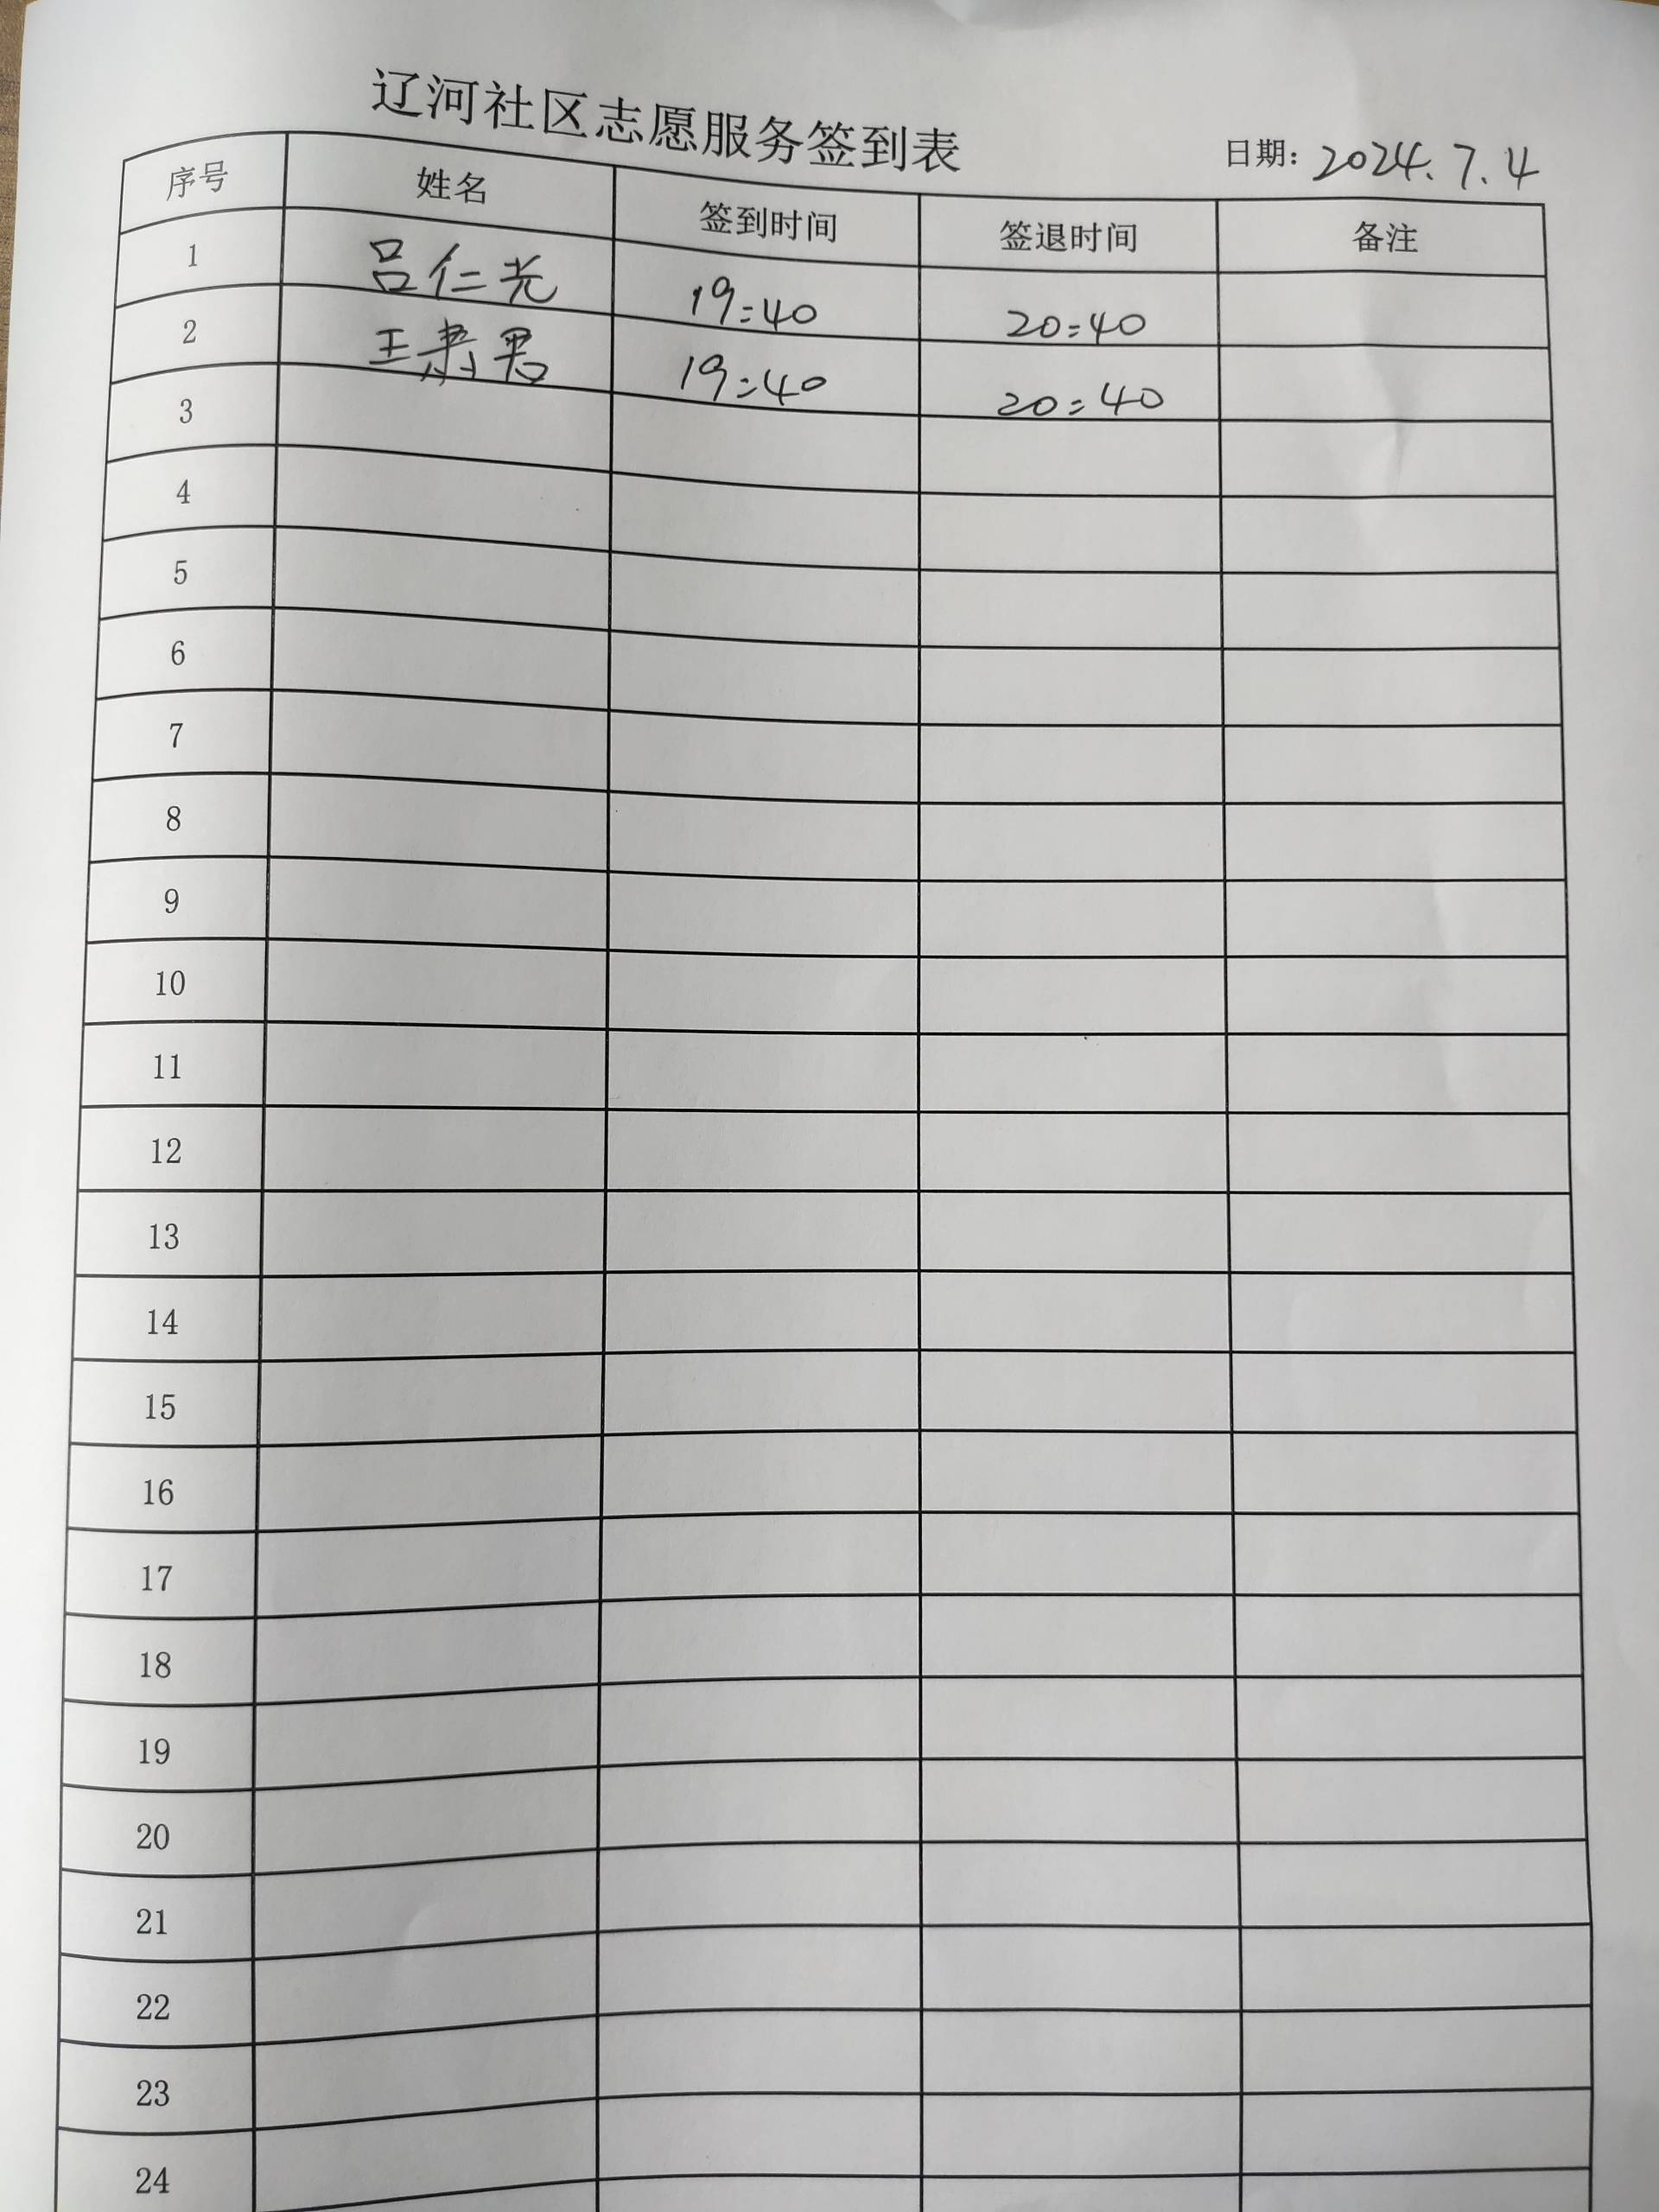 辽河社区志愿服务签到表
日期: 2024.7.4
序号 姓名 签到时间 签退时间 备注
1 吕仁光 19:40 20:40
2 王肃君 19:40 20:40
3
4
5
6
7
8
9
10
11
12
13
14
15
16
17
18
19
20
21
22
23
24